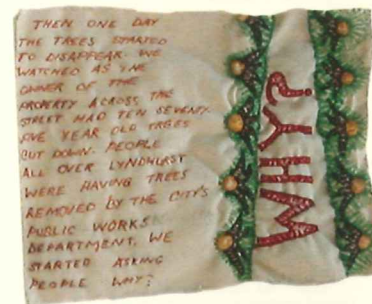 THEN ONE DAY
THE TREES STARTED
TO DISAPPEAR. WE
WATCHED AS THE
OWNER OF THE
PROPERTY ACROSS THE
STREET HAD TEN SEVENTY-
FIVE YEAR OLD TREES
CUT DOWN. PEOPLE
ALL OVER LYNDHURST
WERE HAVING TREES
REMOVED BY THE CITY'S
PUBLIC WORKS
DEPARTMENT. WE
STARTED ASKING
PEOPLE WHY?
WHY?